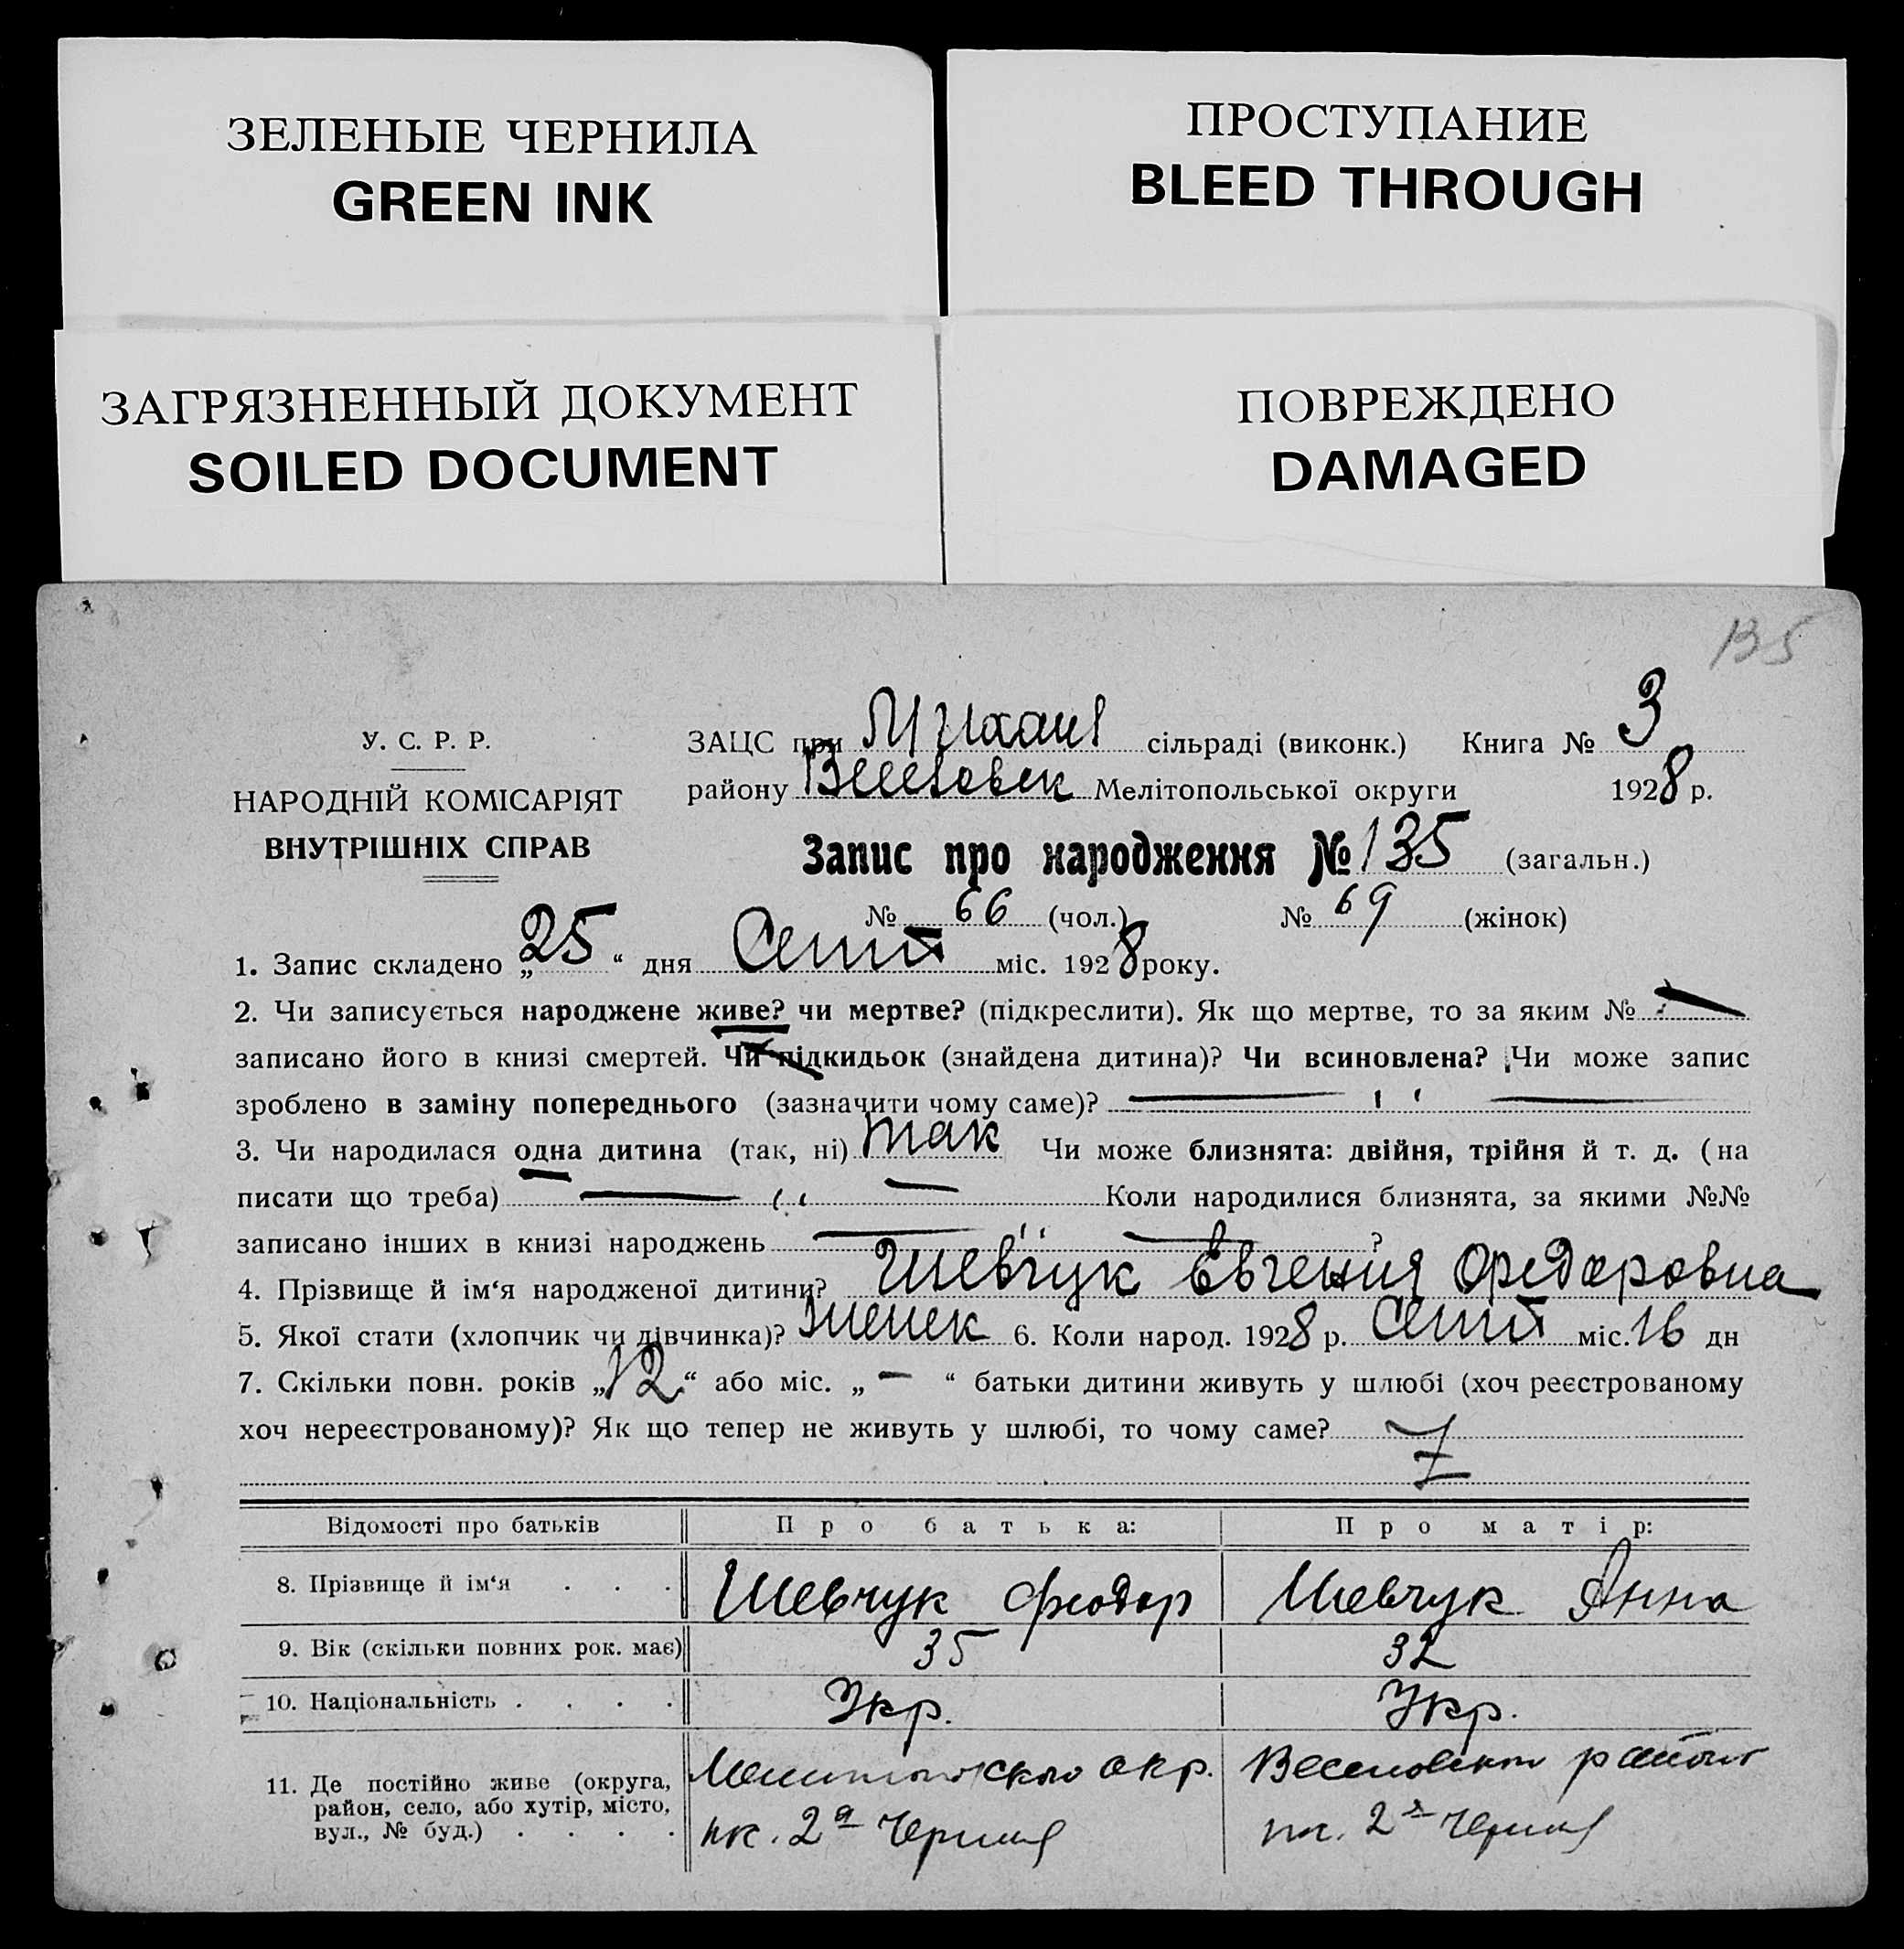 ЗЕЛЕНЫЕ ЧЕРНИЛА
GREEN INK
ПРОСТУПАНИЕ
BLEED THROUGH
ЗАГРЯЗНЕННЫЙ ДОКУМЕНТ
SOILED DOCUMENT
ПОВРЕЖДЕНО
DAMAGED
135
У. С. Р. Р.
НАРОДНІЙ КОМІСАРІЯТ
ВНУТРІШНІХ СПРАВ
ЗАЦС при Михаил сільраді (виконк.) Книга № 3
району Веселовск Мелітопольської округи 1928 р.
Запис про народження № 135 (загальн.)
№ 66 (чол.) № 69 (жінок)
1. Запис складено „25“ дня Сент міс. 1928 року.
2. Чи записується народжене живе? чи мертве? (підкреслити). Як що мертве, то за яким №
записано його в книзі смертей. Чи підкидьок (знайдена дитина)? Чи всиновлена? Чи може запис
зроблено в заміну попереднього (зазначити чому саме)? — " —
3. Чи народилася одна дитина (так, ні) так Чи може близнята: двійня, трійня й т. д. (на
писати що треба) — " — Коли народилися близнята, за якими №№
записано інших в книзі народжень — " — ?
4. Прізвище й ім‘я народженої дитини? Шевчук Евгения Федоровна
5. Якої стати (хлопчик чи дівчинка)? женск 6. Коли народ. 1928 р. Сент міс. 16 дн
7. Скільки повн. років „12“ або міс. „ — “ батьки дитини живуть у шлюбі (хоч реєстрованому
хоч нереєстрованому)? Як що тепер не живуть у шлюбі, то чому саме?
Відомості про батьків Про батька: Про матір:
8. Прізвище й ім‘я . . . Шевчук Феодор Шевчук Анна
9. Вік (скільки повних рок. має) 35 32
10. Національність . . . . Укр. Укр.
11. Де постійно живе (округа,
район, село, або хутір, місто,
вул., № буд.) . . . .
окр. район
2я 2я